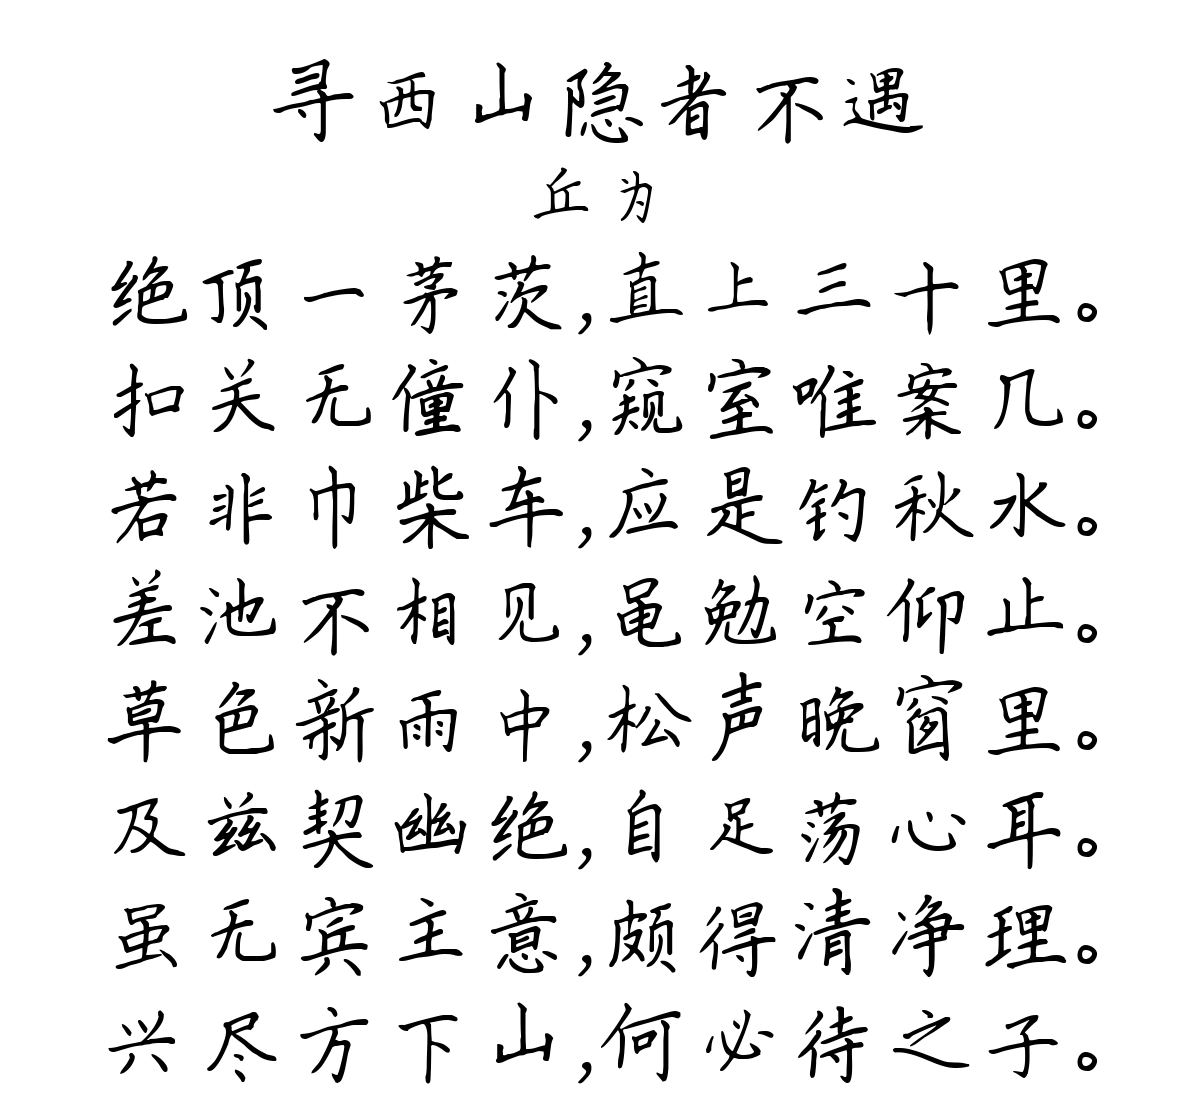 寻西山隐者不遇
丘为
绝顶一茅茨,直上三十里。
扣关无僮仆,窥室唯案几。
若非巾柴车,应是钓秋水。
差池不相见,黾勉空仰止。
草色新雨中,松声晚窗里。
及兹契幽绝,自足荡心耳。
虽无宾主意,颇得清净理。
兴尽方下山,何必待之子。